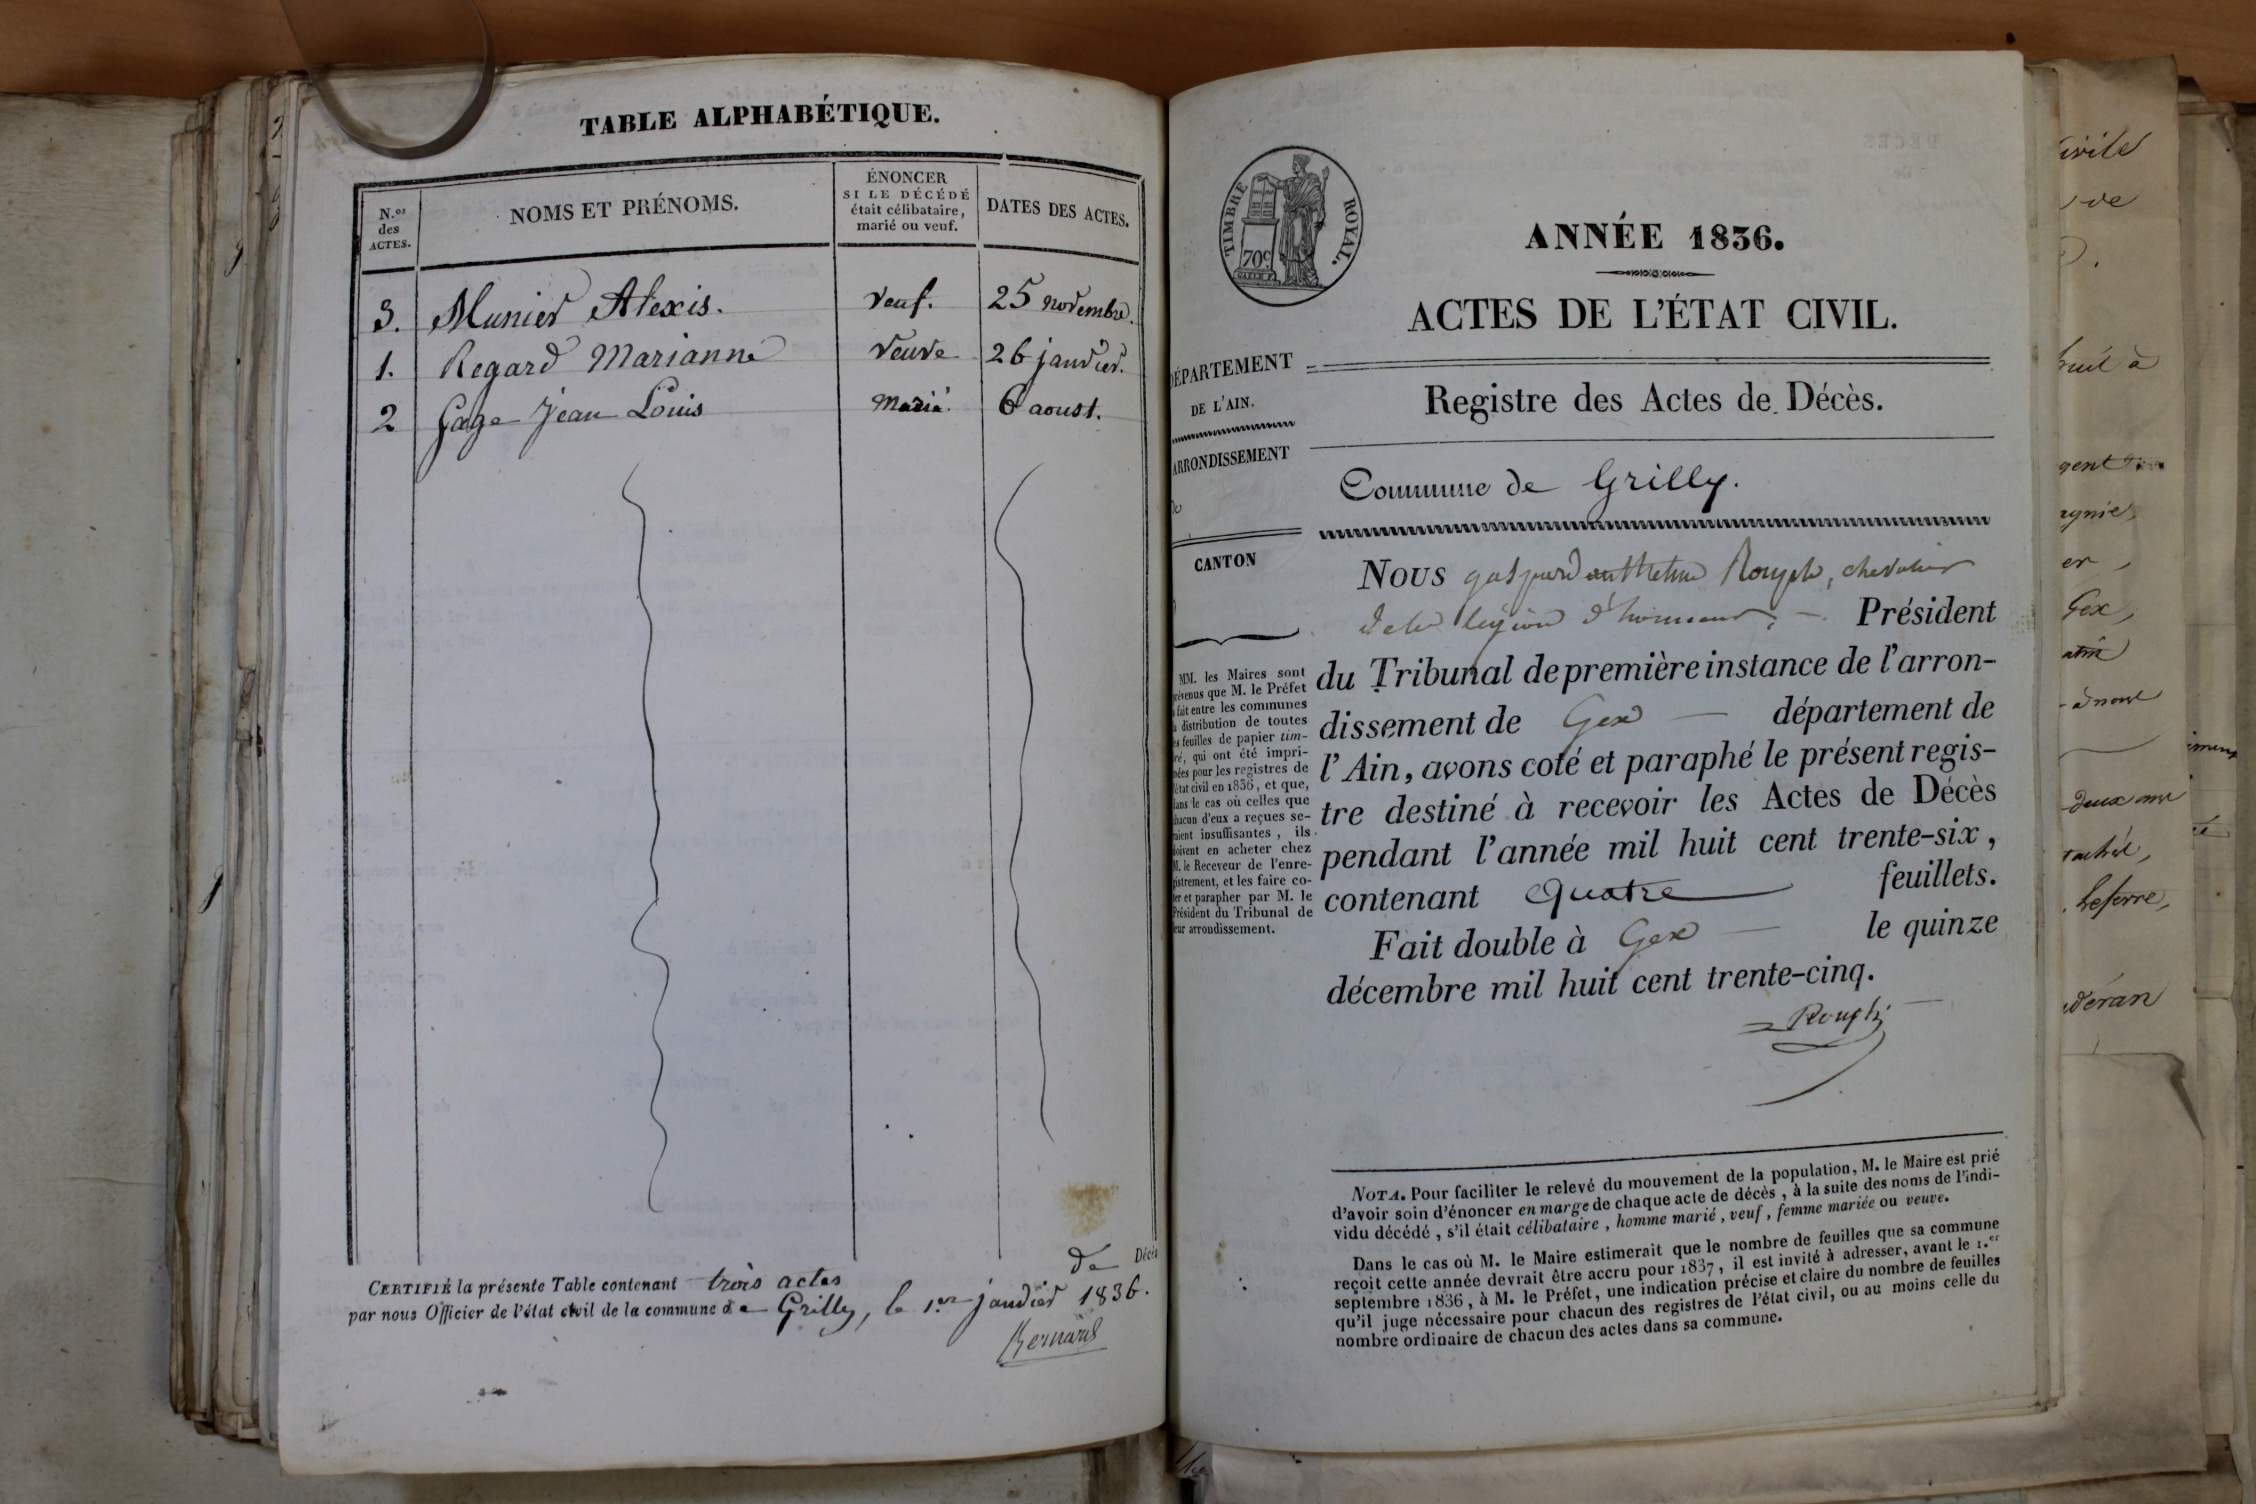 TABLE ALPHABÉTIQUE.
N.os
des
ACTES.
NOMS ET PRÉNOMS.
ÉNONCER
SI LE DÉCÉDÉ
était célibataire,
marié ou veuf.
DATES DES ACTES.
3. Munier Alexis. veuf. 25 novembre.
1. Regard Marianne veuve 26 janvier.
2 Gage Jean Louis marié. 6 aoust.
de Décès
CERTIFIÉ la présente Table contenant trois actes
par nous Officier de l'état civil de la commune de Grilly, le 1.er janvier 1836.
Bernard
TIMBRE ROYAL.
70c
ANNÉE 1836.
ACTES DE L'ÉTAT CIVIL.
DÉPARTEMENT
DE L'AIN.
ARRONDISSEMENT
de
CANTON
Registre des Actes de Décès.
Commune de Grilly.
MM. les Maires sont
prévenus que M. le Préfet
a fait entre les communes
la distribution de toutes
les feuilles de papier tim-
bré, qui ont été impri-
mées pour les registres de
l'état civil en 1836, et que,
dans le cas où celles que
chacun d'eux a reçues se-
raient insuffisantes, ils
doivent en acheter chez
M. le Receveur de l'enre-
gistrement, et les faire co-
ter et parapher par M. le
Président du Tribunal de
leur arrondissement.
NOUS gaspard chevalier
de la légion d'honneur, Président
du Tribunal de première instance de l'arron-
dissement de Gex département de
l'Ain, avons coté et paraphé le présent regis-
tre destiné à recevoir les Actes de Décès
pendant l'année mil huit cent trente-six,
contenant quatre feuillets.
Fait double à Gex le quinze
décembre mil huit cent trente-cinq.
NOTA. Pour faciliter le relevé du mouvement de la population, M. le Maire est prié
d'avoir soin d'énoncer en marge de chaque acte de décès, à la suite des noms de l'indi-
vidu décédé, s'il était célibataire, homme marié, veuf, femme mariée ou veuve.
Dans le cas où M. le Maire estimerait que le nombre de feuilles que sa commune
reçoit cette année devrait être accru pour 1837, il est invité à adresser, avant le 1.er
septembre 1836, à M. le Préfet, une indication précise et claire du nombre de feuilles
qu'il juge nécessaire pour chacun des registres de l'état civil, ou au moins celle du
nombre ordinaire de chacun des actes dans sa commune.